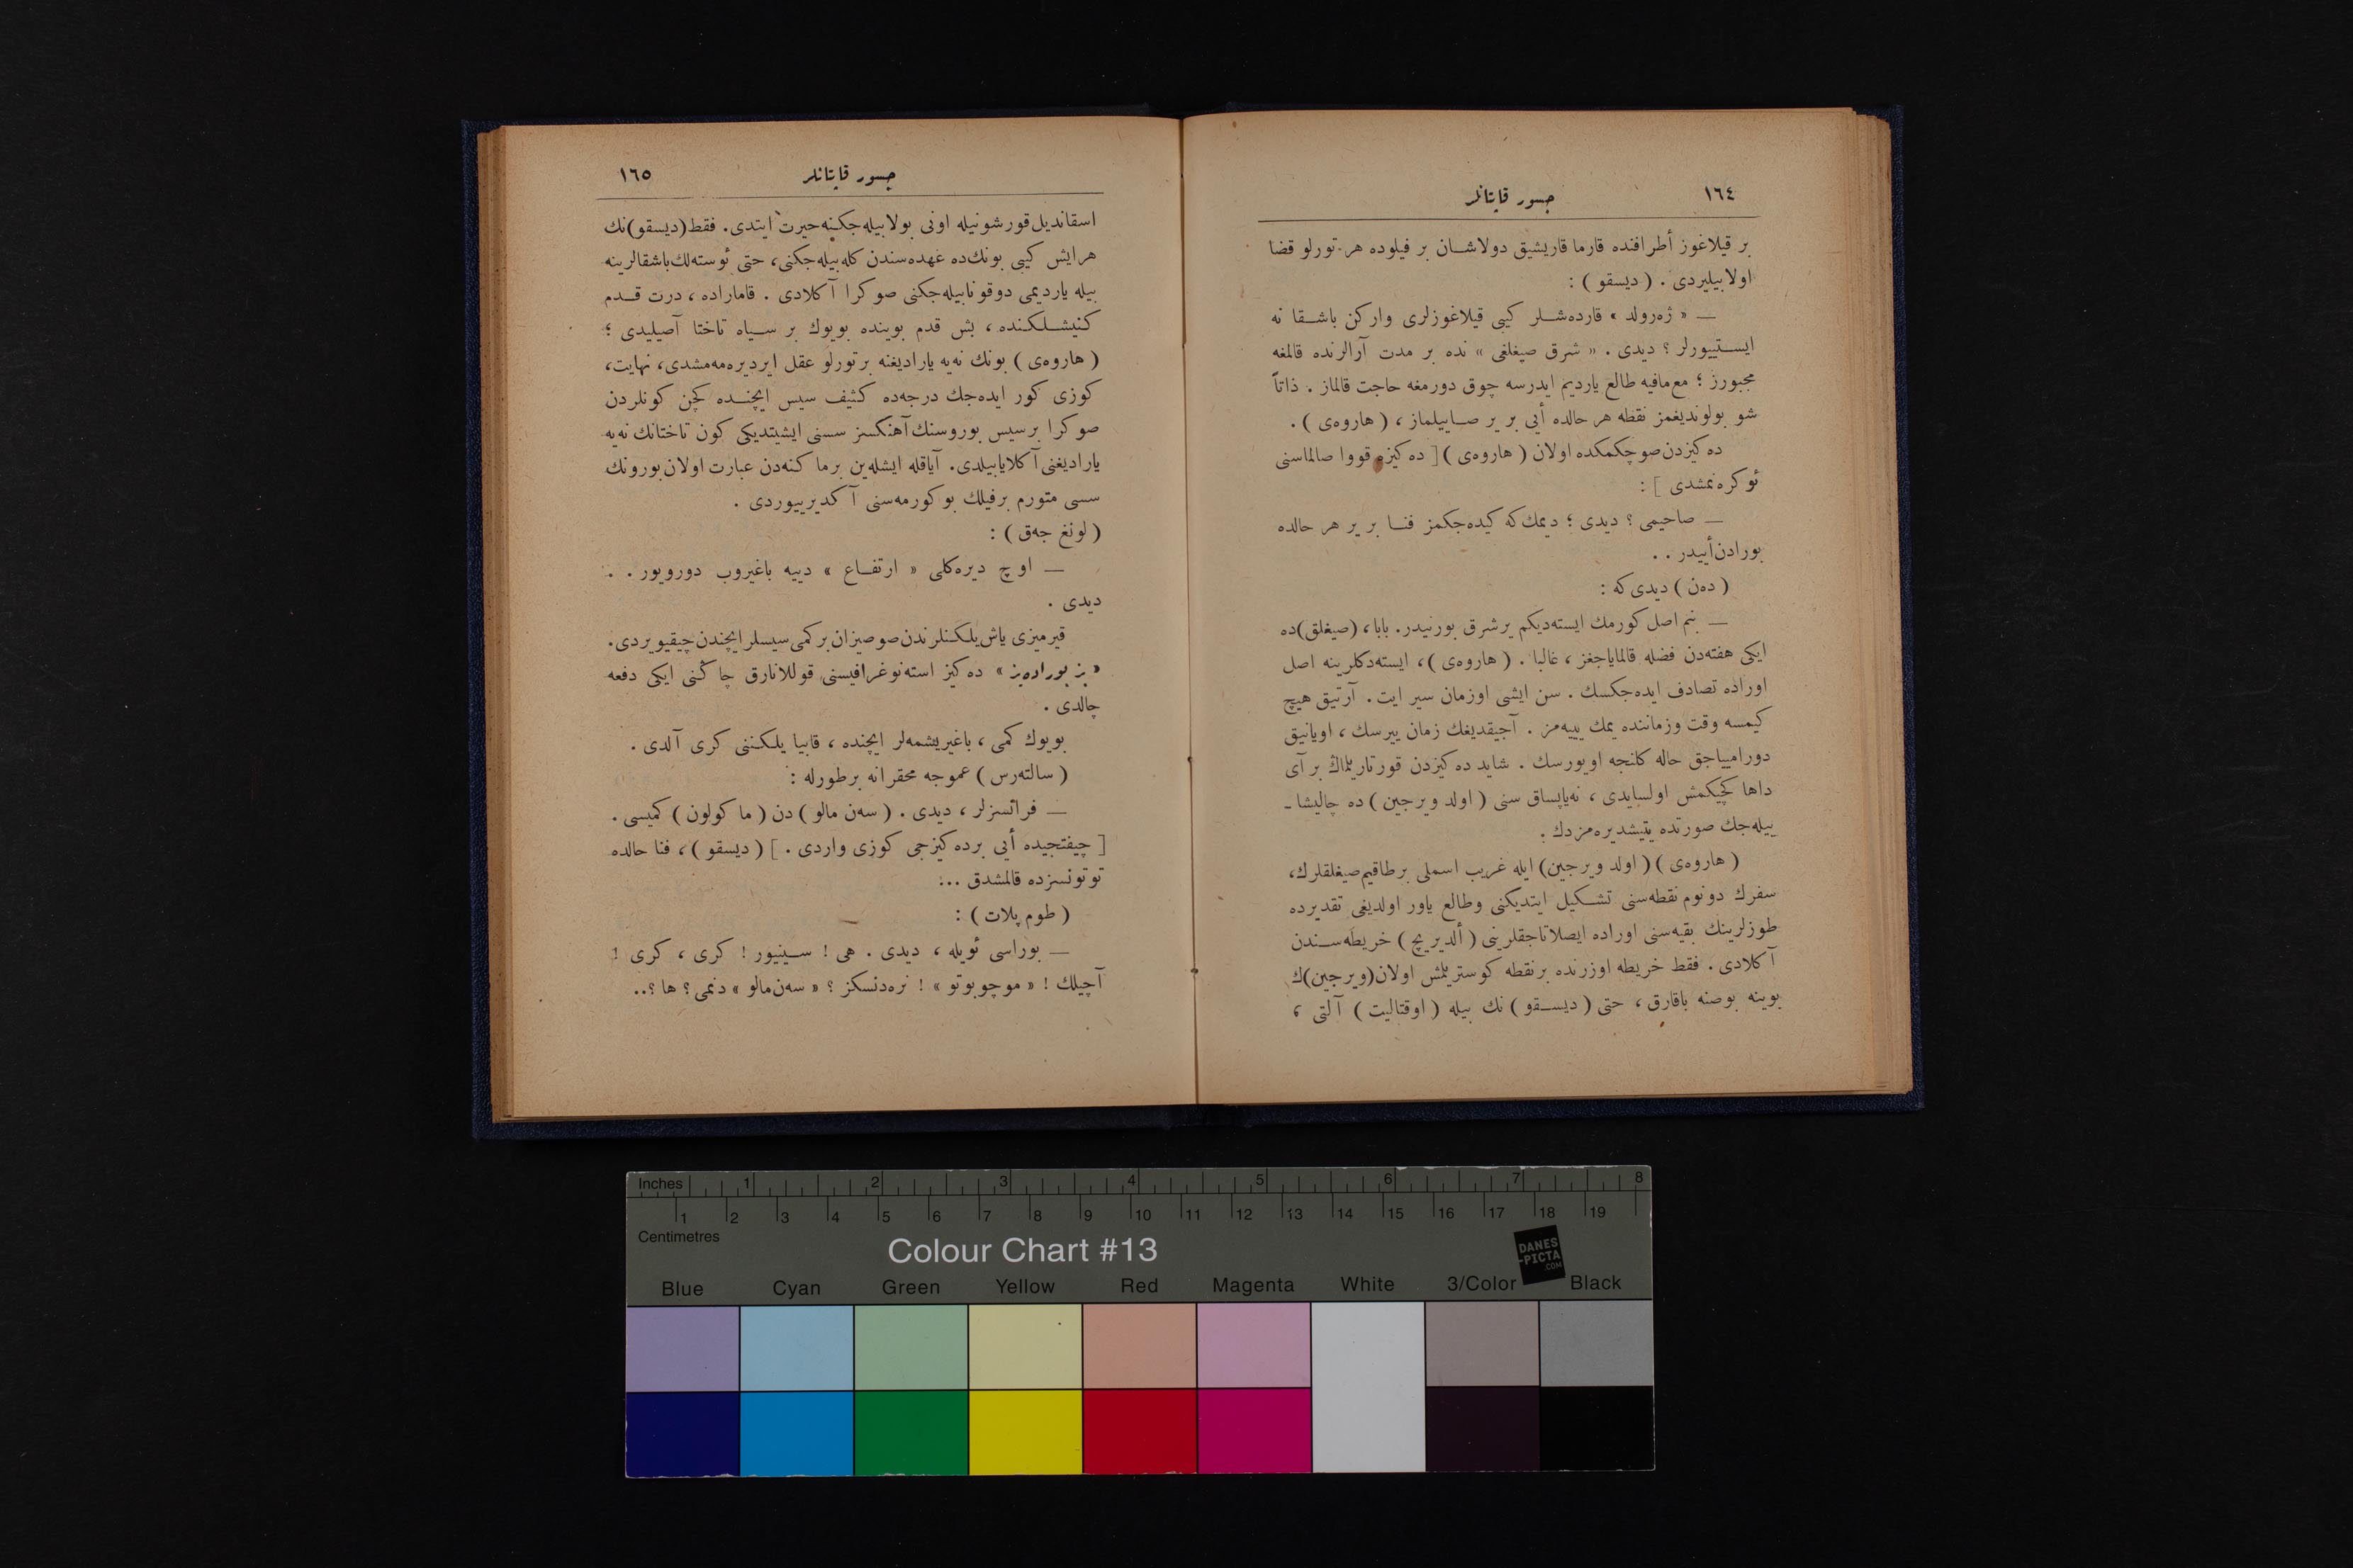 ١٦٤
جسور قاپتانلر
بر قیلاغوز أطرافنده قارما قاریشیق دولاشان بر فیلوده هر تورلو قضا
اولابیلیردی . ( دیسقو ) :
— « ژەرولد » قارده‌شلر کیبی قیلاغوزلری وارکن باشقا نه
ایستییورلر ؟ دیدی . « شرق صیغلغی » نده بر مدت آرالرنده قالمغه
مجبورز ؛ مع‌مافیه طالع یاردیم ایدرسه چوق دورمغه حاجت قالماز . ذاتاً
شو بولوندیغمز نقطه هر حالده أیی بر یر صاییلماز ، ( هاروه‌ی ) .
ده‌کیزدن صو چکمکده اولان ( هاروه‌ی ) [ ده‌کیزه قووا صالماسنی
ئوکره‌نمشدی ] :
— صاحیمی ؟ دیدی ؛ دیمك‌که کیده‌جکمز فنا بر یر هر حالده
بورادن أییدر . .
( ده‌ن ) دیدی‌که :
— بنم اصل کورمك ایسته‌دیکم یر شرق بورنیدر. بابا، (صیغلق)ده
ایکی هفته‌دن فضله قالمایاجغز ، غالبا . ( هاروه‌ی )، ایسته‌دکلرینه اصل
اوراده تصادف ایده‌جکسك . سن ایشی اوزمان سیر ایت . آرتیق هیچ
کیمسه وقت وزماننده یمك ییه‌مز . آجیقدیغك زمان ییرسك ، اویانیق
دورامییاجق حاله کلنجه اویورسك . شاید ده‌کیزدن قورتاریلماڭ بر آی
داها کچیکمش اولسایدی ، نه‌یاپساق سنی ( اولد ویرجین ) ده چالیشا -
بیله‌جك صورتده یتیشدیره‌مزدك .
( هاروه‌ی ) ( اولد ویرجین) ایله غریب اسملی برطاقیم صیغلقلرك،
سفرك دونوم نقطه‌سنی تشکیل ایتدیکنی وطالع یاور اولدیغی تقدیرده
طوزلرینك بقیه‌سنی اوراده ایصلاتاجقلرینی ( ألدیریج ) خریطه‌سندن
آکلادی . فقط خریطه اوزرنده بر نقطه کوستریلمش اولان (ویرجین)ك
بوینه بوصنه باقارق ، حتی ( دیسقو ) نك بیله ( اوقتالیت ) آلتی ،
جسور قاپتانلر
١٦٥
اسقاندیل قورشونیله اونی بولابیله‌جکنه حیرت ایتدی. فقط (دیسقو)نك
هر ایش کیبی بونك‌ده عهده‌سندن کله‌بیله‌جکنی، حتی ئوسته‌لك باشقالرینه
بیله یاردیمی دوقونابیله‌جکنی صوکرا آکلادی . قاماراده ، درت قدم
کنیشلکنده ، بش قدم بوینده بویوك بر سیاه تاختا آصیلیدی ؛
( هاروه‌ی ) بونك نه‌یه یارادیغنه بر تورلو عقل ایردیره‌مه‌مشدی، نهایت،
کوزی کور ایده‌جك درجه‌ده کثیف سیس ایچنده کچن کونلردن
صوکرا بر سیس بوروسنك آهنکسز سسنی ایشیتدیکی کون تاختانك نه‌یه
یارادیغنی آکلایابیلدی. آیاقله ایشله‌ین بر ماکنه‌دن عبارت اولان بورونك
سسی متورم بر فیلك بوکورمه‌سنی آکدیرییوردی .
( لونغ جه‌ق ) :
— اوچ دیره‌کلی « ارتفاع » دییه باغیروب دورویور . .
دیدی .
قیرمیزی یاش یلکنلرندن صو صیزان بر کمی سیسلر ایچندن چیقیویردی.
« بز بوراده‌یز » ده‌کیز استه‌نوغرافیسنی قوللانارق چاڭنی ایکی دفعه
چالدی .
بویوك کمی ، باغیریشمه‌لر ایچنده ، قابیا یلکننی کری آلدی .
( سالته‌رس ) عموجه محقرانه بر طورله :
— فرانسزلر ، دیدی . ( سه‌ن مالو ) دن ( ماکولون ) کمیسی .
[ چیفتجیده أیی بر ده‌کیزجی کوزی واردی . ] ( دیسقو ) ، فنا حالده
توتونسزده قالمشدق ...
( طوم پلات ) :
— بوراسی ئویله ، دیدی . هی ! سینیور ! کری ، کری !
آچیلك ! « موچو بوتو » ! نره‌دنسکز ؟ « سه‌ن مالو » دنمی ؟ ها ؟..
Inches 1 2 3 4 5 6 7 8
1 2 3 4 5 6 7 8 9 10 11 12 13 14 15 16 17 18 19
Centimetres
Colour Chart #13
DANES
-PICTA
.COM
Blue Cyan Green Yellow Red Magenta White 3/Color Black